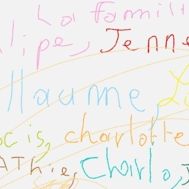 La famill
lipe, Jenne
llaume,
oc is, charlotte
Athie, Charlo,